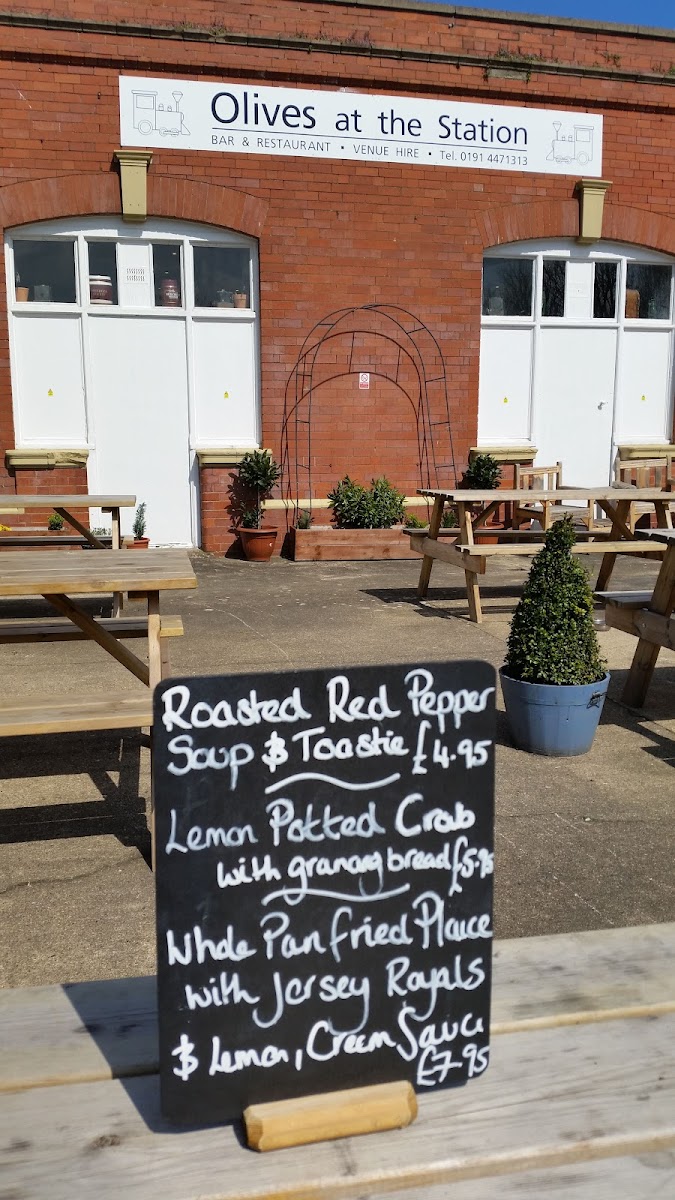 Olives at the Station
BAR & RESTAURANT • VENUE HIRE • Tel. 0191 4471313
Roasted Red Pepper
Soup & Toastie £4.95
Lemon Potted Crab
with granary bread £5.95
Whole Pan fried Plaice
with Jersey Royals
& Lemon, Cream Sauce
£7.95